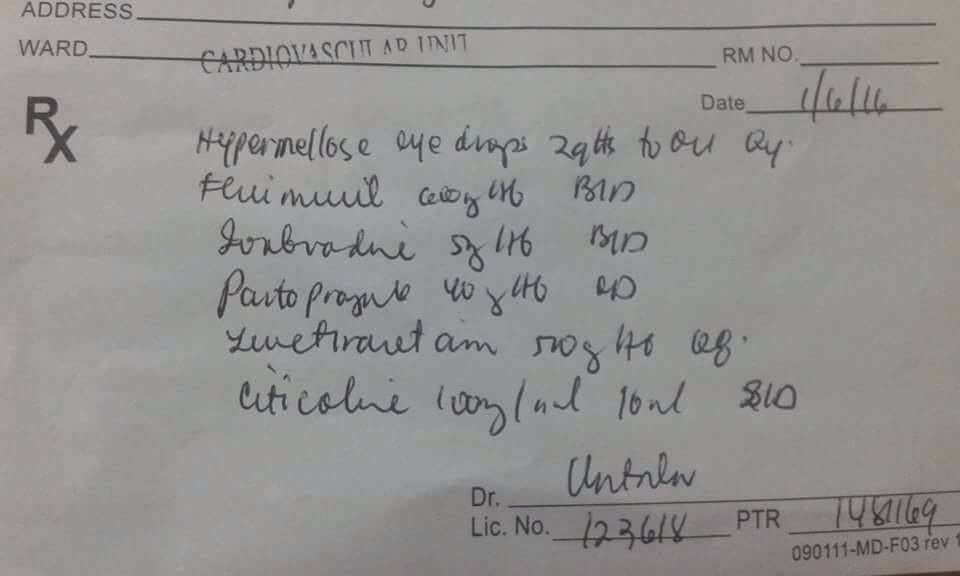 ADDRESS
WARD CARDIOVASCULAR UNIT RM NO.
Date 1/6/16
Rx
Hypermellose eye drops 2gtts to OU
Fluimucil 600mg tab BID
Ivabradine 5mg tab BID
Pantoprazole 40mg tab OD
Levetiracetam 500mg tab
Citicoline 100mg/ml 10ml BID
Dr.
Lic. No. 123618 PTR 1481169
090111-MD-F03 rev 1